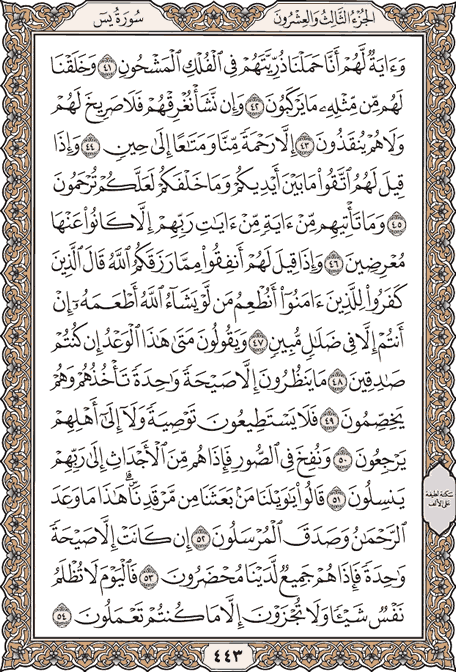 الجزء الثالث والعشرون
سورة يس
وَءَايَةٌ لَّهُمْ أَنَّا حَمَلْنَا ذُرِّيَّتَهُمْ فِي الْفُلْكِ الْمَشْحُونِ ٤١ وَخَلَقْنَا
لَهُم مِّن مِّثْلِهِۦ مَا يَرْكَبُونَ ٤٢ وَإِن نَّشَأْ نُغْرِقْهُمْ فَلَا صَرِيخَ لَهُمْ
وَلَا هُمْ يُنقَذُونَ ٤٣ إِلَّا رَحْمَةً مِّنَّا وَمَتَٰعًا إِلَىٰ حِينٍ ٤٤ وَإِذَا
قِيلَ لَهُمُ ٱتَّقُوا۟ مَا بَيْنَ أَيْدِيكُمْ وَمَا خَلْفَكُمْ لَعَلَّكُمْ تُرْحَمُونَ
٤٥ وَمَا تَأْتِيهِم مِّنْ ءَايَةٍ مِّنْ ءَايَٰتِ رَبِّهِمْ إِلَّا كَانُوا۟ عَنْهَا
مُعْرِضِينَ ٤٦ وَإِذَا قِيلَ لَهُمْ أَنفِقُوا۟ مِمَّا رَزَقَكُمُ ٱللَّهُ قَالَ ٱلَّذِينَ
كَفَرُوا۟ لِلَّذِينَ ءَامَنُوٓا۟ أَنُطْعِمُ مَن لَّوْ يَشَآءُ ٱللَّهُ أَطْعَمَهُۥٓ إِنْ
أَنتُمْ إِلَّا فِي ضَلَٰلٍ مُّبِينٍ ٤٧ وَيَقُولُونَ مَتَىٰ هَٰذَا ٱلْوَعْدُ إِن كُنتُمْ
صَٰدِقِينَ ٤٨ مَا يَنظُرُونَ إِلَّا صَيْحَةً وَٰحِدَةً تَأْخُذُهُمْ وَهُمْ
يَخِصِّمُونَ ٤٩ فَلَا يَسْتَطِيعُونَ تَوْصِيَةً وَلَآ إِلَىٰٓ أَهْلِهِمْ
يَرْجِعُونَ ٥٠ وَنُفِخَ فِي ٱلصُّورِ فَإِذَا هُم مِّنَ ٱلْأَجْدَاثِ إِلَىٰ رَبِّهِمْ
يَنسِلُونَ ٥١ قَالُوا۟ يَٰوَيْلَنَا مَنۢ بَعَثَنَا مِن مَّرْقَدِنَا ۜ ۗ هَٰذَا مَا وَعَدَ
ٱلرَّحْمَٰنُ وَصَدَقَ ٱلْمُرْسَلُونَ ٥٢ إِن كَانَتْ إِلَّا صَيْحَةً
وَٰحِدَةً فَإِذَا هُمْ جَمِيعٌ لَّدَيْنَا مُحْضَرُونَ ٥٣ فَٱلْيَوْمَ لَا تُظْلَمُ
نَفْسٌ شَيْـًٔا وَلَا تُجْزَوْنَ إِلَّا مَا كُنتُمْ تَعْمَلُونَ ٥٤
سكتة لطيفة
على الألف
٤٤٣